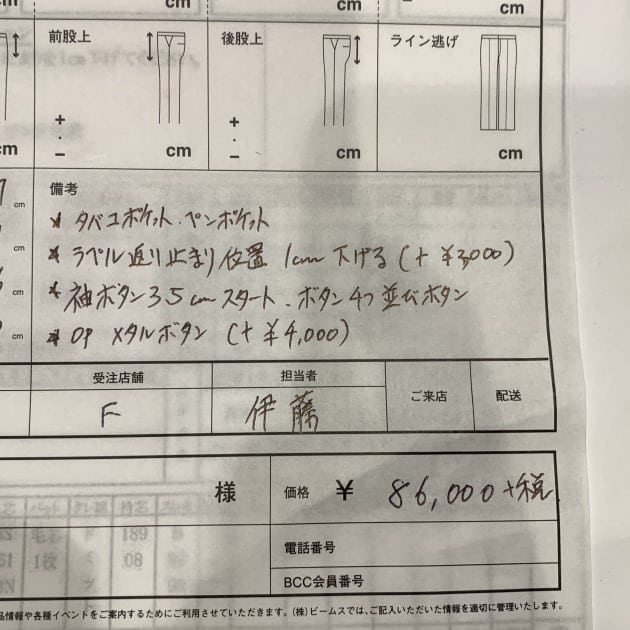 cm cm cm
前股上 後股上 ライン逃げ
+ · - + · -
cm cm cm cm
備考
cm
* タバコポケット・ペンポケット
* ラペル返り止まり位置 1cm 下げる (+ ¥3,000)
* 袖ボタン3.5cmスタート、ボタン4つ並びボタン
cm
* OP メタルボタン (+ ¥4,000)
cm
受注店舗 担当者 ご来店 配送
F 伊藤
様 価格 ¥ 86,000+税
189
1枚 08
電話番号
BCC会員番号
品情報や各種イベントをご案内するためにご利用させていただきます。(株)ビームスでは、ご記入いただいた情報を適切に管理いたします。